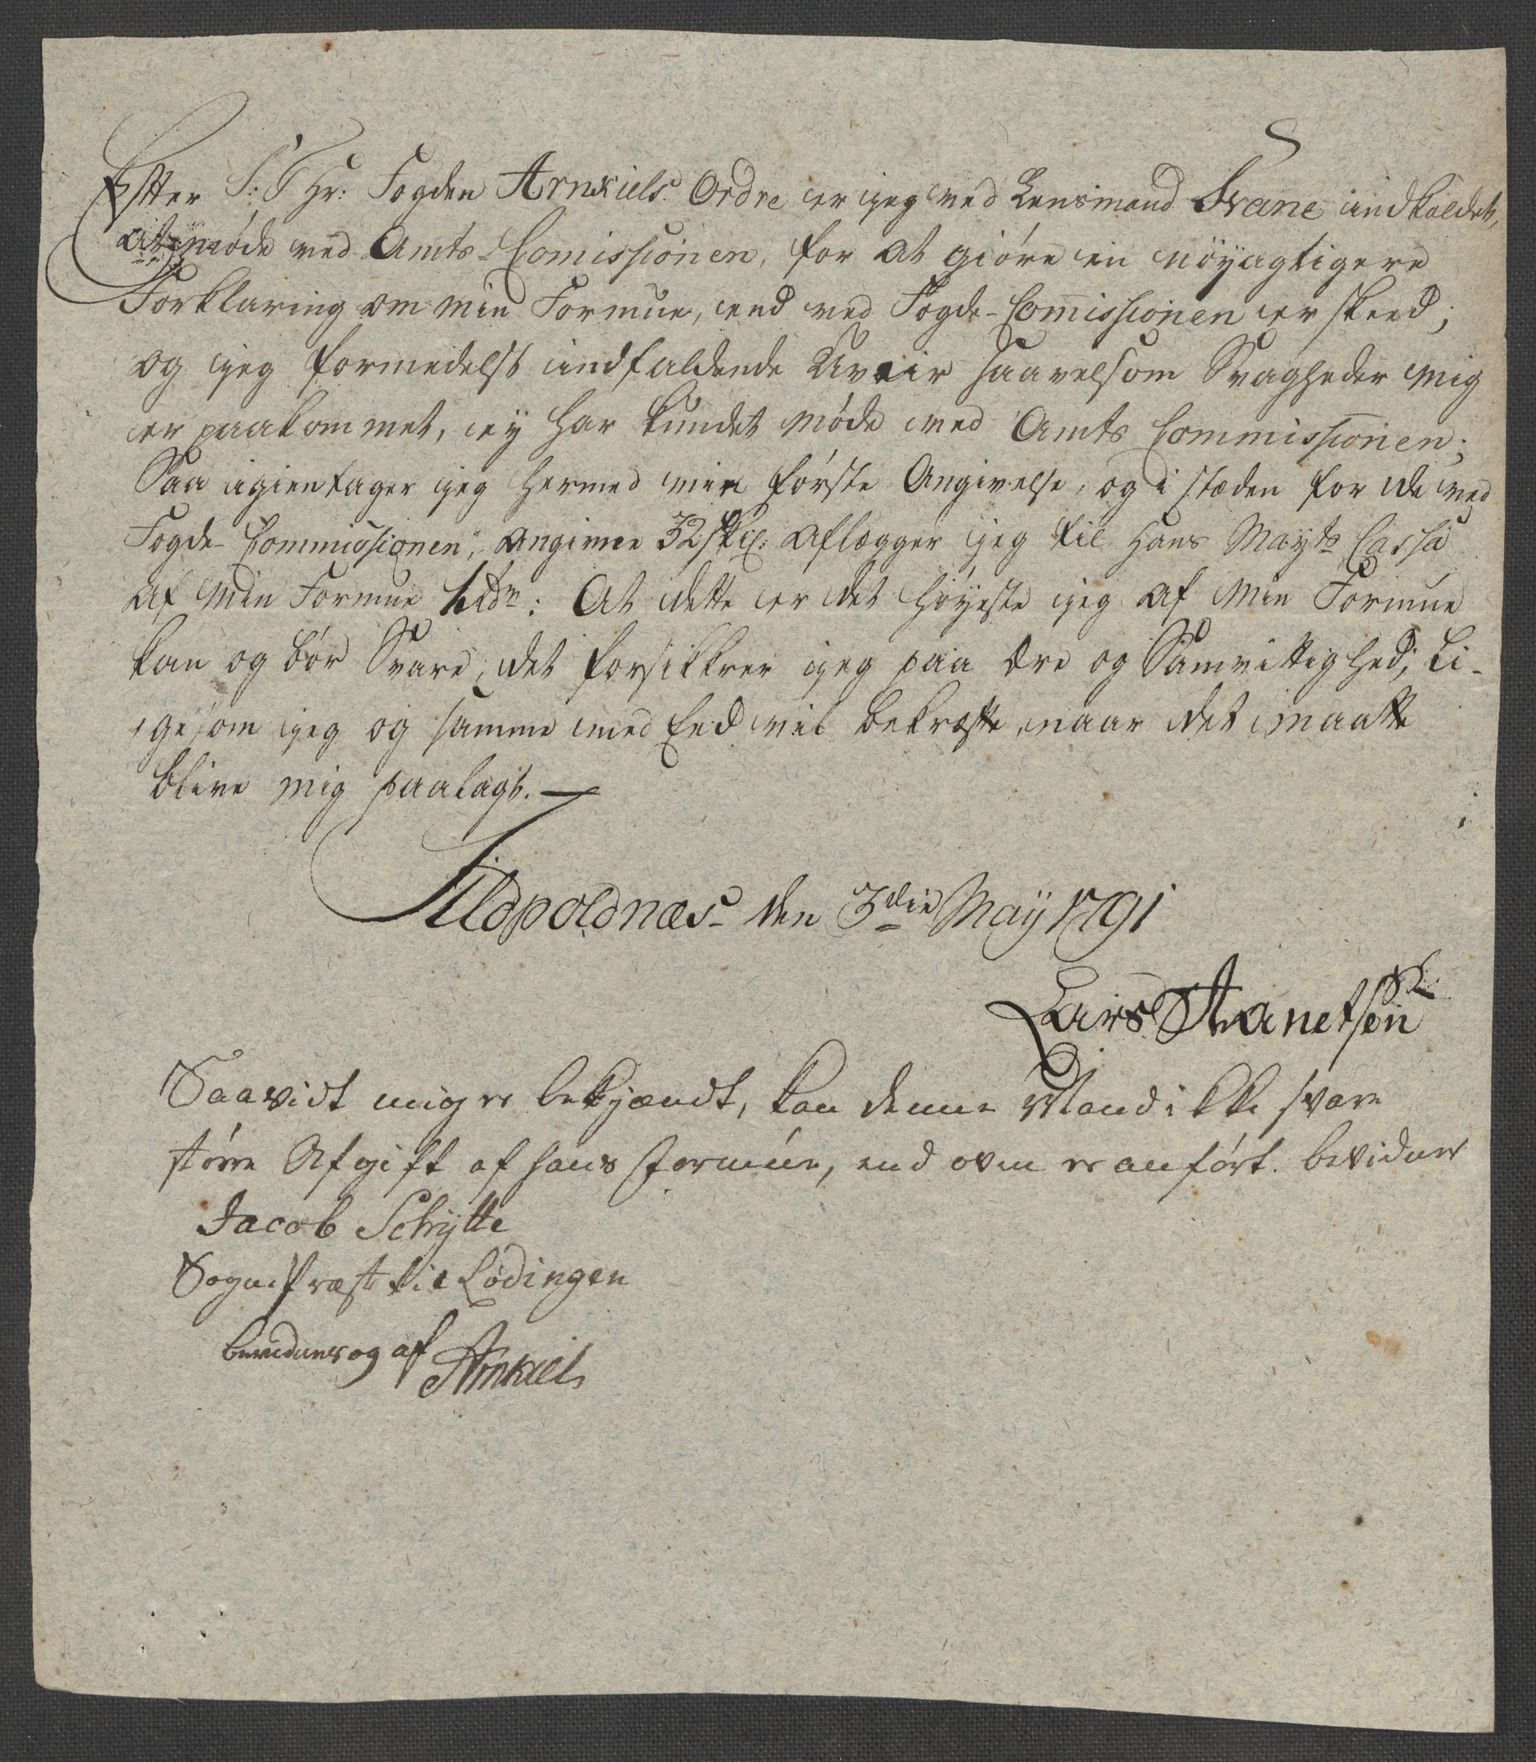 Efter S: T Hr: Fogden Arnkiels Ordre er jeg ved Lensmand Svane indkaldet,
at møde ved Amts-Comissionen, for at giøre en nøyagtigere
Forklaring om min Formue, end ved Fogde-Comissionen er skeed;
og jeg formedelst indfaldende Uveir saavelsom Svagheder mig
er paakommet, ey har kundet møde ved Amts Commissionen;
Saa igientager jeg hermed min første Angivelse, og i stæden for de ved
Fogde-Commissionen, angivne 32 skil: aflægger jeg til Hans Mayts Cassa
af min Formue 1 rdr: At dette er det høyeste jeg af min Formue
kan og bør Svare, det forsikkrer jeg paa Ære og Samvittighed; li-
gesom jeg og samme med Eed vil bekræfte, naar det maatte
blive mig paalagt.
Sildpoldnæs den 3die May 1791
Lars Aanetsen
Saavidt mig er bekjændt, kan denne Mand ikke svare
større Afgift af hans Formüe, end oven er anført. bevidner
Jacob Schytte
Sognepræst til Lødingen
bevidnes og af Arnkiel